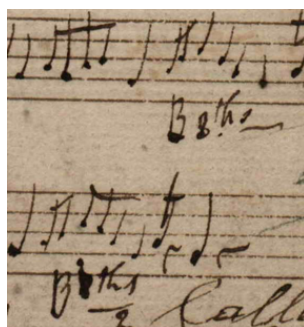 B 8ths
B 8ths
2 Call